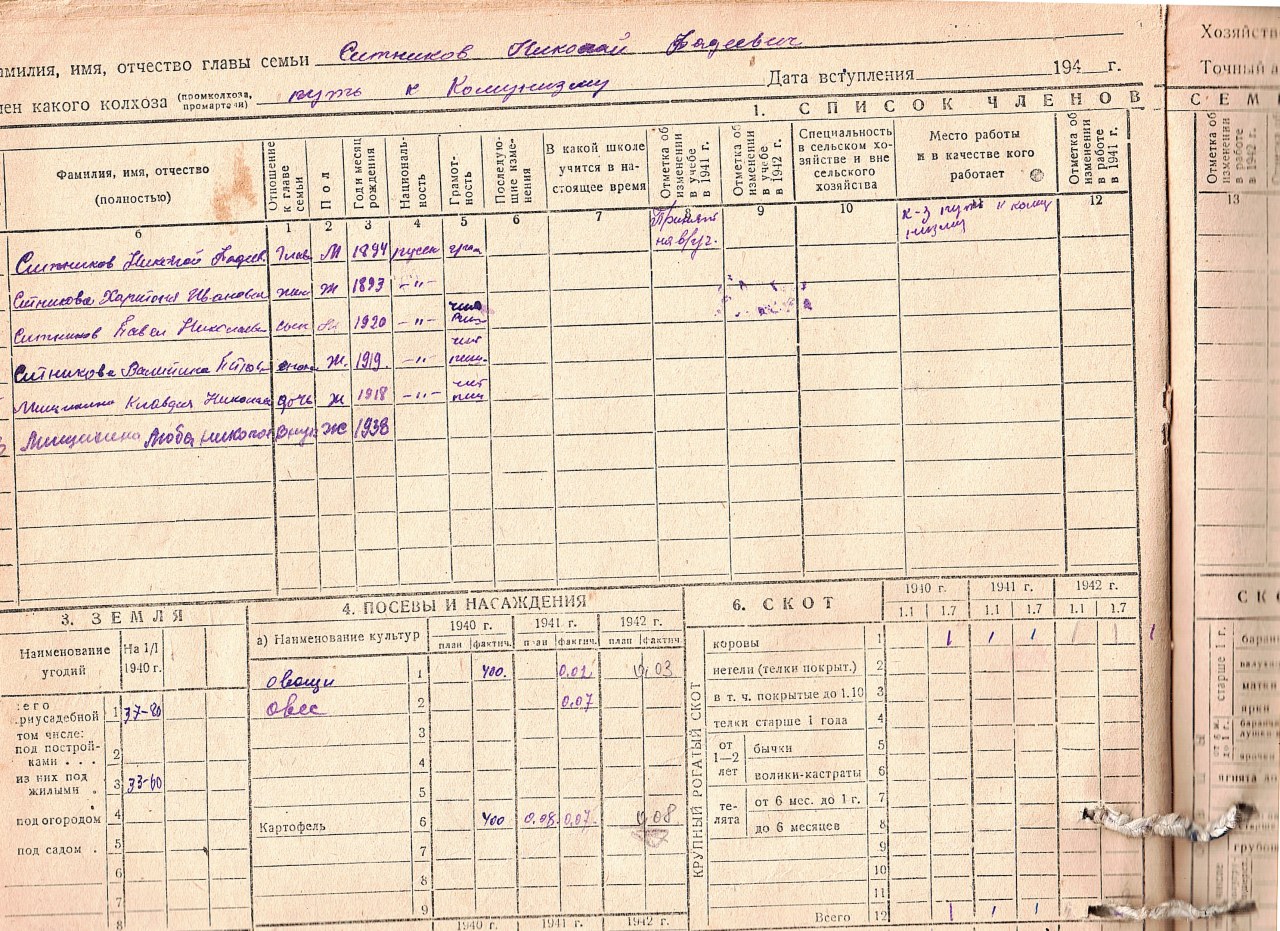 амилия, имя, отчество главы семьи Ситников Николай Фадеевич
лен какого колхоза (промколхоза, промартели) путь к Комунизму Дата вступления 194 г.
1. СПИСОК ЧЛЕНОВ СЕМ
Фамилия, имя, отчество (полностью)
Отношение к главе семьи
Пол
Год и месяц рождения
Националь-ность
Грамот-ность
Последую-щие изме-нения
В какой школе учится в на-стоящее время
Отметка об изменении в учебе в 1941 г.
Отметка об изменении в учебе в 1942 г.
Специальность в сельском хо-зяйстве и вне сельского хозяйства
Место работы и в качестве кого работает
Отметка об изменении в работе в 1941 г.
Отметка об изменении в работе в 1942 г.
б 1 2 3 4 5 6 7 8 9 10 11 12 13
Ситников Николай Фадеев Глав М 1894 русск к-з путь к кому низму
Ситникова Ивановна жен Ж 1893 -"-
Ситников Павел Николаев сын 1920 -"-
Ситникова Валентина Петров Ж. 1919. -"-
Клавдия Николае дочь Ж 1918 -"-
Люба Внук Ж 1938
3. ЗЕМЛЯ
Наименование угодий На 1/I 1940 г.
сего
риусадебной 1 37-80
том числе:
под построй-ками . . . 2
из них под жилыми . 3 33-60
под огородом 4
под садом . 5
6
7
8
4. ПОСЕВЫ И НАСАЖДЕНИЯ
а) Наименование культур 1940 г. 1941 г. 1942 г.
план фактич. план фактич. план фактич.
овощи 1 400. 0.02 0,03
овес 2 0.07
3
4
5
Картофель 6 400 0.08. 0,07. 0,08
7
8
9
1940 г. 1941 г. 1942 г.
6. СКОТ
1940 г. 1941 г. 1942 г.
1.1 1.7 1.1 1.7 1.1 1.7
КРУПНЫЙ РОГАТЫЙ СКОТ
коровы 1 1 1 1 1
нетели (телки покрыт.) 2
в т. ч. покрытые до 1.10 3
телки старше 1 года 4
от 1—2 лет бычки 5
волики-кастраты 6
те-лята от 6 мес. до 1 г. 7
до 6 месяцев 8
9
10
11
Всего 12 1 1 1
Хозяйство
Точный а
СКО
старше 1 г.
баран
валухи
матки
ярки
ягнята до